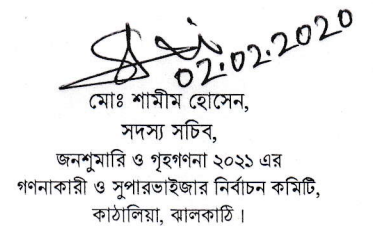 02.02.2020
মোঃ শামীম হোসেন,
সদস্য সচিব,
জনশুমারি ও গৃহগণনা ২০২১ এর
গণনাকারী ও সুপারভাইজার নির্বাচন কমিটি,
কাঠালিয়া, ঝালকাঠি ।